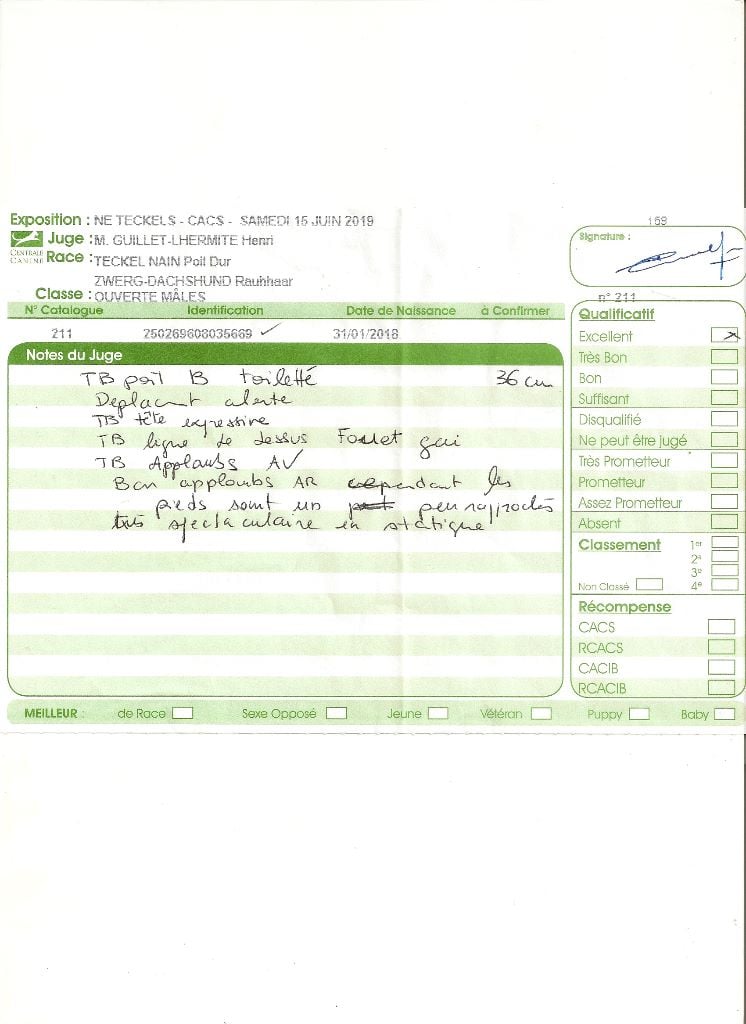 Exposition : NE TECKELS - CACS - SAMEDI 15 JUIN 2019
169
CENTRALE CANINE
Juge : M. GUILLET-LHERMITE Henri
Signature :
Race : TECKEL NAIN Poil Dur
ZWERG-DACHSHUND Rauhhaar
Classe : OUVERTE MÂLES
n° 211
N° Catalogue Identification Date de Naissance à Confirmer
211 250269608035669 31/01/2018
Notes du Juge
TB poil B toiletté 36 cm
Deplacmt alerte
TB tête expressive
TB ligne de dessus Fouet gai
TB Applombs AV
Bon applombs AR cependant les
pieds somt un peu rapprochés
très spectaculaire en statique
Qualificatif
Excellent
Très Bon
Bon
Suffisant
Disqualifié
Ne peut être jugé
Très Prometteur
Prometteur
Assez Prometteur
Absent
Classement 1er
2e
3e
Non Classé 4e
Récompense
CACS
RCACS
CACIB
RCACIB
MEILLEUR : de Race Sexe Opposé Jeune Vétéran Puppy Baby